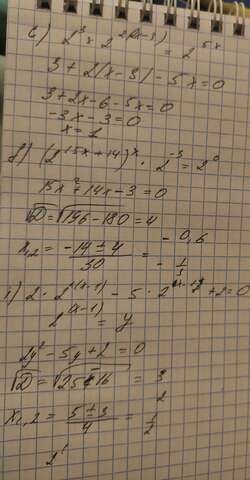 6) 2³ × 2^(2(x-3)) = 2^(5x)
3 + 2(x-3) - 5x = 0
3 + 2x - 6 - 5x = 0
-3x - 3 = 0
x = 1
8) (2^(15x+14))^x · 2^(-3) = 2^0
15x² + 14x - 3 = 0
√D = √196 - 180 = 4
x1,2 = (-14 ± 4)/30 = -0,6
- 1/3
2 · 2^(2(x-1)) - 5 · 2^(x-1) + 2 = 0
2^(x-1) = y
2y² - 5y + 2 = 0
√D = √25-16 = 3
x1,2 = (5 ± 3)/4 = 2
1/2
2¹